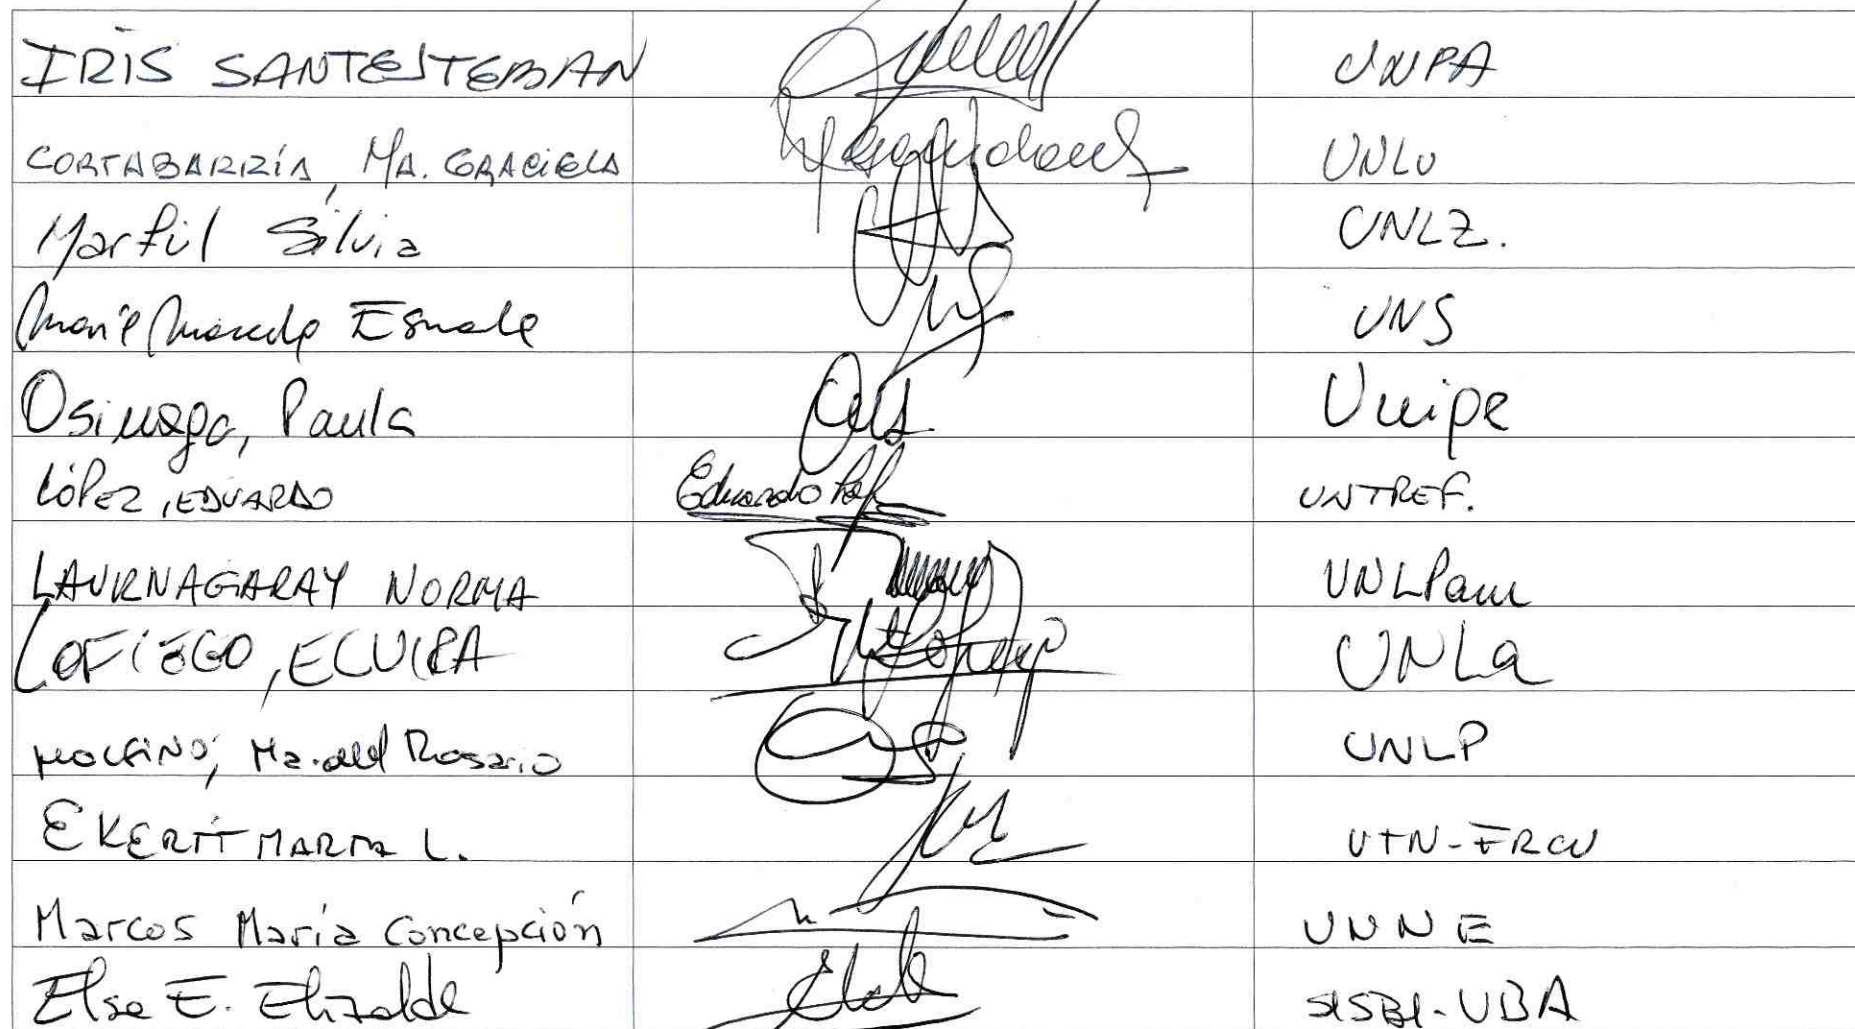 IRIS SANTESTEBAN UNPA
CORTABARRÍA, MA. GRACIELA UNLu
Marfil Silvia UNLZ.
UNS
Osinaga, Paula Unipe
LÓPEZ, EDUARDO Eduardo UNTREF.
LAURNAGARAY NORMA UNLPam
LOFIEGO, ELVIRA UNLa
MOLFINO, Ma. del Rosario UNLP
EKERTT MARTA L. UTN-FRCU
Marcos María Concepción UNNE
Elsa E. Elizalde SISBI-UBA